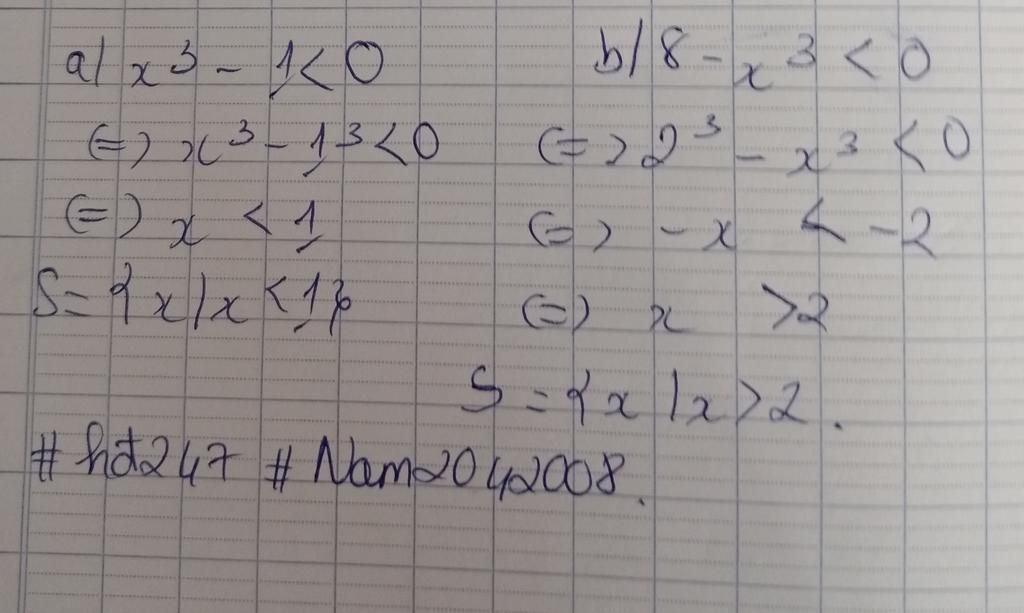 a/ x³ - 1 < 0
(=) x³ - 1³ < 0
(=) x < 1
S = {x/x < 1}
b/ 8 - x³ < 0
(=) 2³ - x³ < 0
(=) -x < -2
(=) x > 2
S = {x/x > 2.
#hđ247 #Nam2042008.